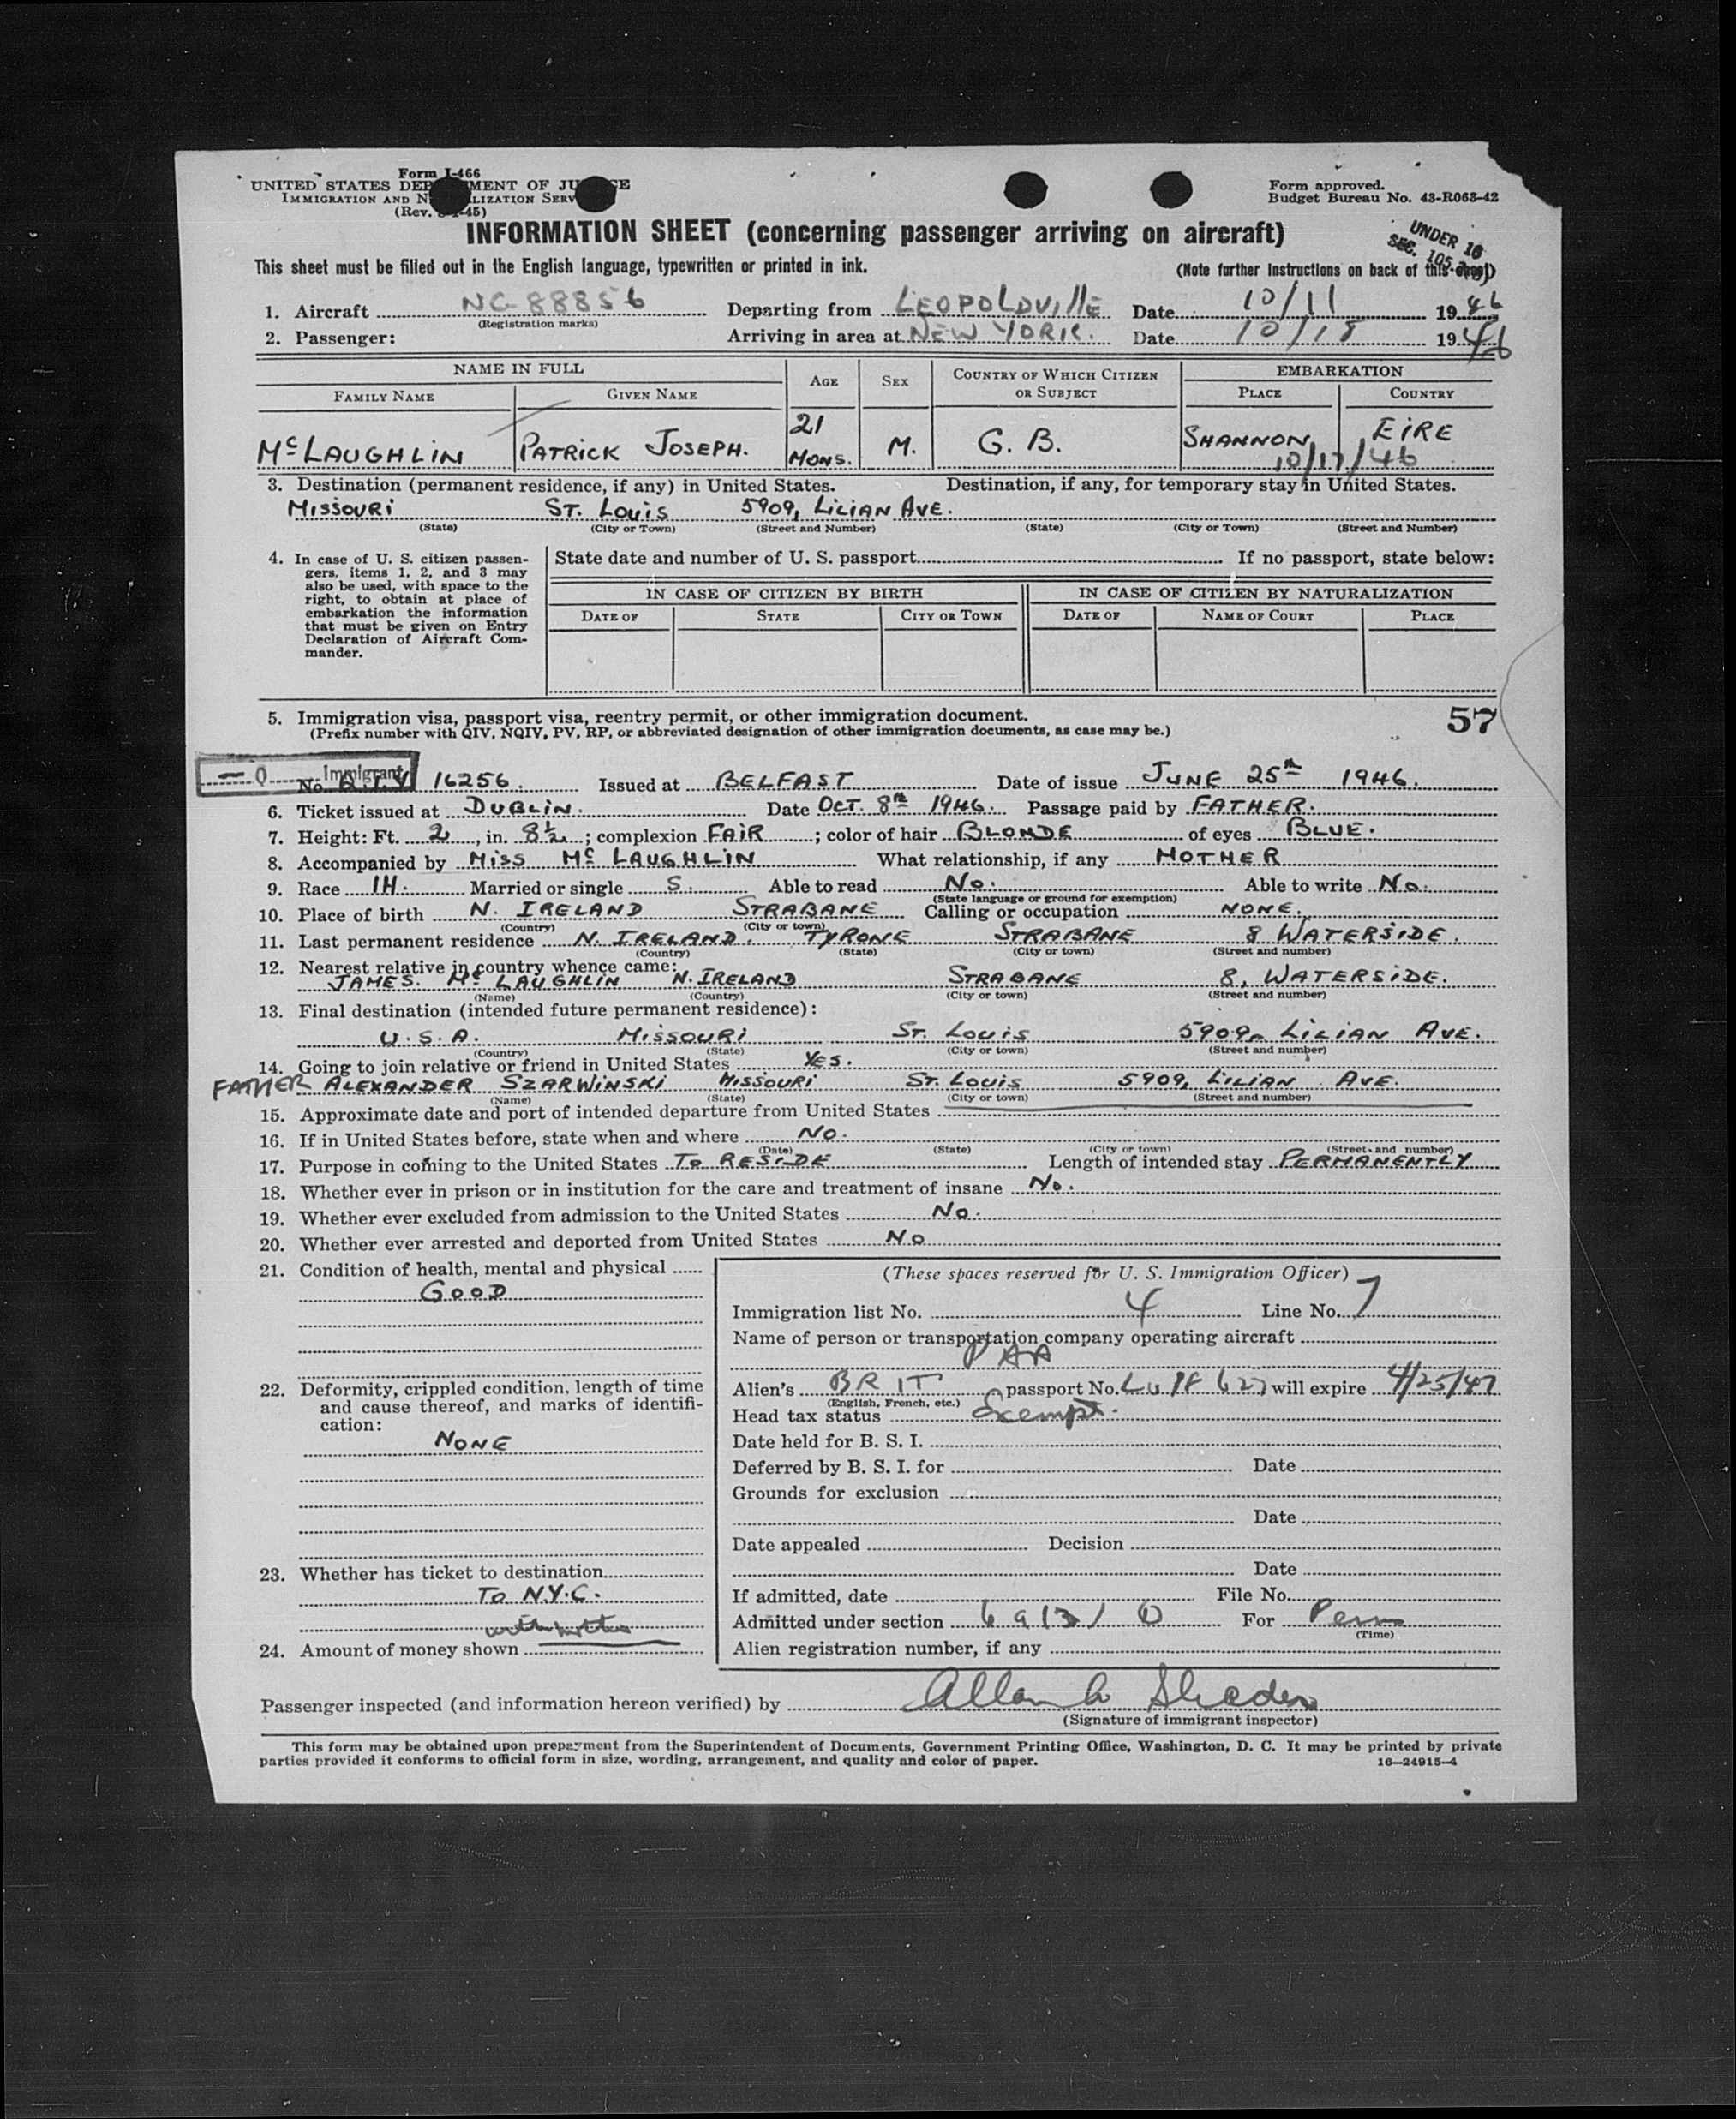 Form I-466
UNITED STATES DEPARTMENT OF JUSTICE
IMMIGRATION AND NATURALIZATION SERVICE
(Rev. 45)
Form approved.
Budget Bureau No. 43-R063-42
INFORMATION SHEET (concerning passenger arriving on aircraft)
UNDER 16
SEC. 105
This sheet must be filled out in the English language, typewritten or printed in ink. (Note further instructions on back of this sheet)
1. Aircraft NC-88856 Departing from LEOPOLDVILLE Date 10/11 1946
(Registration marks)
2. Passenger: Arriving in area at NEW YORK. Date 10/18 1946
NAME IN FULL AGE SEX COUNTRY OF WHICH CITIZEN OR SUBJECT EMBARKATION
FAMILY NAME GIVEN NAME PLACE COUNTRY
McLAUGHLIN PATRICK JOSEPH. 21 MONS. M. G. B. SHANNON EIRE
10/17/46
3. Destination (permanent residence, if any) in United States. Destination, if any, for temporary stay in United States.
MISSOURI ST. LOUIS 5909, LILIAN AVE.
(State) (City or Town) (Street and Number) (State) (City or Town) (Street and Number)
4. In case of U. S. citizen passen-
gers, items 1, 2, and 3 may
also be used, with space to the
right, to obtain at place of
embarkation the information
that must be given on Entry
Declaration of Aircraft Com-
mander.
State date and number of U. S. passport If no passport, state below:
IN CASE OF CITIZEN BY BIRTH IN CASE OF CITIZEN BY NATURALIZATION
DATE OF STATE CITY OR TOWN DATE OF NAME OF COURT PLACE
5. Immigration visa, passport visa, reentry permit, or other immigration document.
57
(Prefix number with QIV, NQIV, PV, RP, or abbreviated designation of other immigration documents, as case may be.)
Q Immigrant
No. Q.I.V 16256. Issued at BELFAST Date of issue JUNE 25th 1946.
6. Ticket issued at DUBLIN. Date OCT. 8th 1946. Passage paid by FATHER.
7. Height: Ft. 2, in. 8½; complexion FAIR; color of hair BLONDE of eyes BLUE.
8. Accompanied by MISS McLAUGHLIN What relationship, if any MOTHER
9. Race IH. Married or single S. Able to read No. Able to write No.
(State language or ground for exemption)
10. Place of birth N. IRELAND STRABANE Calling or occupation NONE.
(Country) (City or town)
11. Last permanent residence N. IRELAND. TYRONE STRABANE 8 WATERSIDE.
(Country) (State) (City or town) (Street and number)
12. Nearest relative in country whence came:
JAMES. McLAUGHLIN N. IRELAND STRABANE 8, WATERSIDE.
(Name) (Country) (City or town) (Street and number)
13. Final destination (intended future permanent residence):
U.S.A. MISSOURI ST. LOUIS 5909, LILIAN AVE.
(Country) (State) (City or town) (Street and number)
14. Going to join relative or friend in United States YES.
FATHER ALEXANDER SZARWINSKI MISSOURI ST. LOUIS 5909, LILIAN AVE.
(Name) (State) (City or town) (Street and number)
15. Approximate date and port of intended departure from United States
16. If in United States before, state when and where No.
(Date) (State) (City or town) (Street and number)
17. Purpose in coming to the United States To RESIDE Length of intended stay PERMANENTLY
18. Whether ever in prison or in institution for the care and treatment of insane No.
19. Whether ever excluded from admission to the United States No.
20. Whether ever arrested and deported from United States No
21. Condition of health, mental and physical
GOOD
22. Deformity, crippled condition, length of time
and cause thereof, and marks of identifi-
cation:
NONE
23. Whether has ticket to destination
To N.Y.C.
24. Amount of money shown
(These spaces reserved for U. S. Immigration Officer)
Immigration list No. 4 Line No. 7
Name of person or transportation company operating aircraft
PAA
Alien's BRIT passport No. will expire 4/25/47
(English, French, etc.)
Head tax status Exempt.
Date held for B. S. I.
Deferred by B. S. I. for Date
Grounds for exclusion
Date
Date appealed Decision
Date
If admitted, date File No.
Admitted under section 6 a (3) For Perm
(Time)
Alien registration number, if any
Passenger inspected (and information hereon verified) by Allan
(Signature of immigrant inspector)
This form may be obtained upon prepayment from the Superintendent of Documents, Government Printing Office, Washington, D. C. It may be printed by private
parties provided it conforms to official form in size, wording, arrangement, and quality and color of paper. 16—24915-4